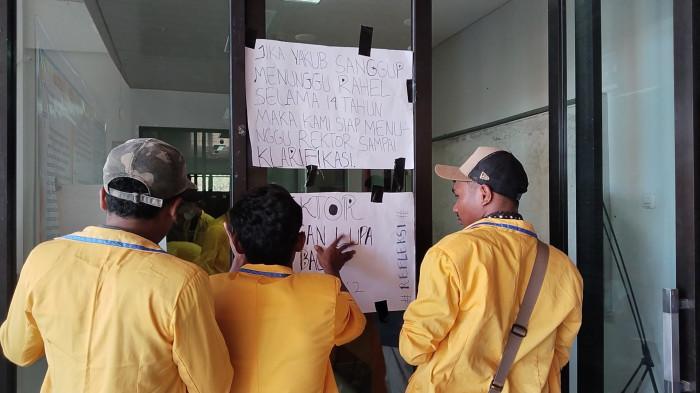 JIKA YAKUB SANGGUP
MENUNGGU RAHEL
SELAMA 14 TAHUN
MAKA KAMI SIAP MENU-
NGGU REKTOR SAMPAI
KLARIFIKASI.
LUPA
#REFLEKSI#